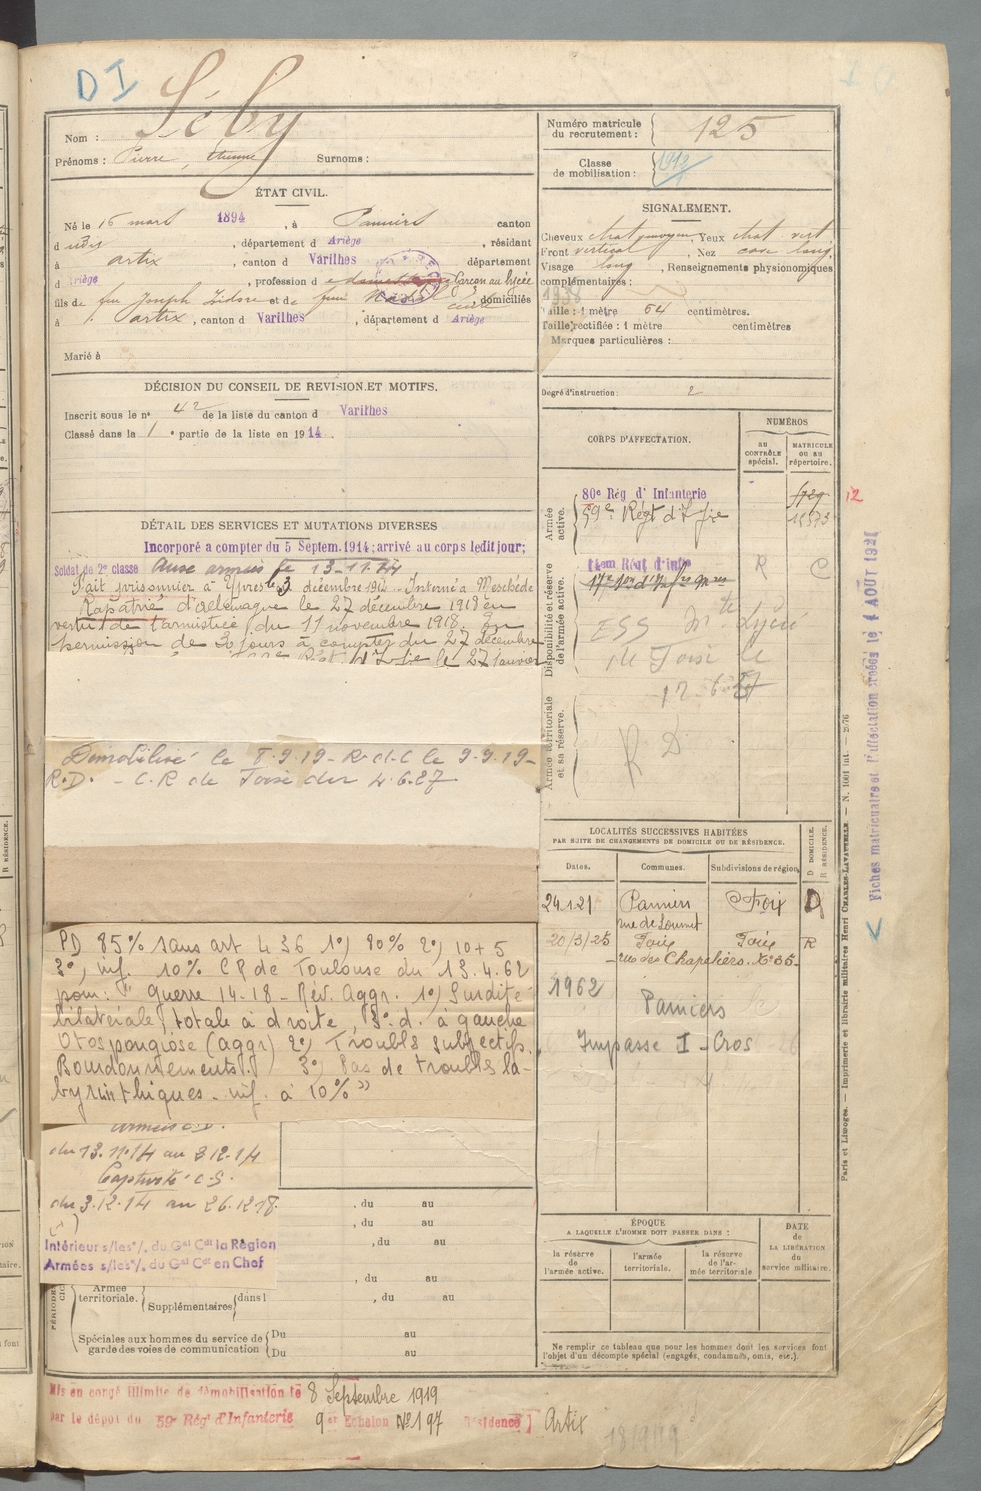 DI
Séby
Nom :
Prénoms : Pierre, Etienne Surnoms :
ÉTAT CIVIL.
Né le 16 mars 1894, à Pamiers canton
dudit, département d Ariège, résidant
à Artix, canton d Varilhes département
d Ariège, profession de Garçon au lycée
fils de feu Joseph Isidore et de domiciliés
à Artix, canton d Varilhes, département d Ariège
Marié à
DÉCISION DU CONSEIL DE REVISION ET MOTIFS.
Inscrit sous le n° 42 de la liste du canton d Varilhes
Classé dans la 1 e partie de la liste en 1914.
DÉTAIL DES SERVICES ET MUTATIONS DIVERSES
Incorporé a compter du 5 Septem. 1914; arrivé au corps ledit jour;
Soldat de 2e classe Aux armées le 13-11-14
Fait prisonnier à Ypres le 3 décembre 1914. Interné à Meschede
Rapatrié d'Allemagne le 27 décembre 1918 en
vertu de l'armistice du 11 novembre 1918. En
permission de 30 jours à compter du 27 décembre
Régt d'Infie le 27 janvier
Démobilisé le 8.9.19 - R.d.C le 9.9.19-
R.D. - C.R de Foix du 4.6.27
PD 85% sans art 4 36 1°) 80% 2°) 10+5
3°) inf. 10% CR de Toulouse du 13.4.62
pour: "Guerre 14-18 - Rév. Aggr. 1°) Surdité
bilatérale totale à droite, à gauche
Otospongiose (aggr) 2°) Troubles subjectifs.
Bourdonnements. 3°) Pas de troubles la-
byrinthiques. inf. à 10%"
du 13.11.14 au 3.12.14
Captivité C.S.
du 3.12.14 au 26.12.18.
Intérieur s/les °/. du Gal Cdt la Région
Armées s/les °/. du Gal Cdt en Chef
, du au
, du au
, du au
, du au
Armée territoriale. Supplémentaires dans l , du au
Spéciales aux hommes du service de garde des voies de communication
Du au
Du au
Mis en congé illimité de démobilisation le 8 Septembre 1919
par le dépôt du 59e Régt d'Infanterie 9e Echelon N° 197 Résidence Artix
18/9/19
Numéro matricule du recrutement : 125
Classe de mobilisation :
SIGNALEMENT.
Cheveux chat moyen, Yeux chat vert
Front vertical, Nez cave long
Visage long, Renseignements physionomiques
complémentaires :
Taille : 1 mètre 64 centimètres.
Taille rectifiée : 1 mètre centimètres
Marques particulières :
Degré d'instruction : 2
CORPS D'AFFECTATION.
NUMÉROS
au CONTRÔLE spécial.
MATRICULE ou au répertoire.
Armée active.
80e Rég d'Infanterie
59e Régt d'Infie
12
Disponibilité et réserve de l'armée active.
R C
de Foix le
Armée territoriale et sa réserve.
R D
LOCALITÉS SUCCESSIVES HABITÉES
PAR SUITE DE CHANGEMENTS DE DOMICILE OU DE RÉSIDENCE.
D DOMICILE.
R RÉSIDENCE.
Dates. Communes. Subdivisions de région
24.1.21 Pamiers Foix D
20/3/25 Foix Foix R
rue des Chapeliers. N° 35
1962 Pamiers
Impasse I - Cros
ÉPOQUE
A LAQUELLE L'HOMME DOIT PASSER DANS :
la réserve de l'armée active.
l'armée territoriale.
la réserve de l'armée territoriale
DATE de LA LIBÉRATION du service militaire.
Ne remplir ce tableau que pour les hommes dont les services font
l'objet d'un décompte spécial (engagés, condamnés, omis, etc.).
Paris et Limoges. — Imprimerie et librairie militaires Henri CHARLES-LAVAUZELLE.
Fiches matriculaire et d'affectation créées le 4 AOÛT 1921